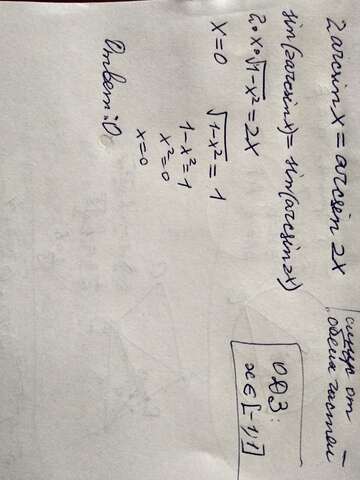 2 arcsin x = arcsin 2x
sin(2arcsin x) = sin(arcsin 2x)
2·x·√1-x² = 2x
x=0
√1-x² = 1
1-x²=1
x²=0
x=0
Ответ: 0
синус от
обеих частей
ОДЗ:
x∈[-1;1]